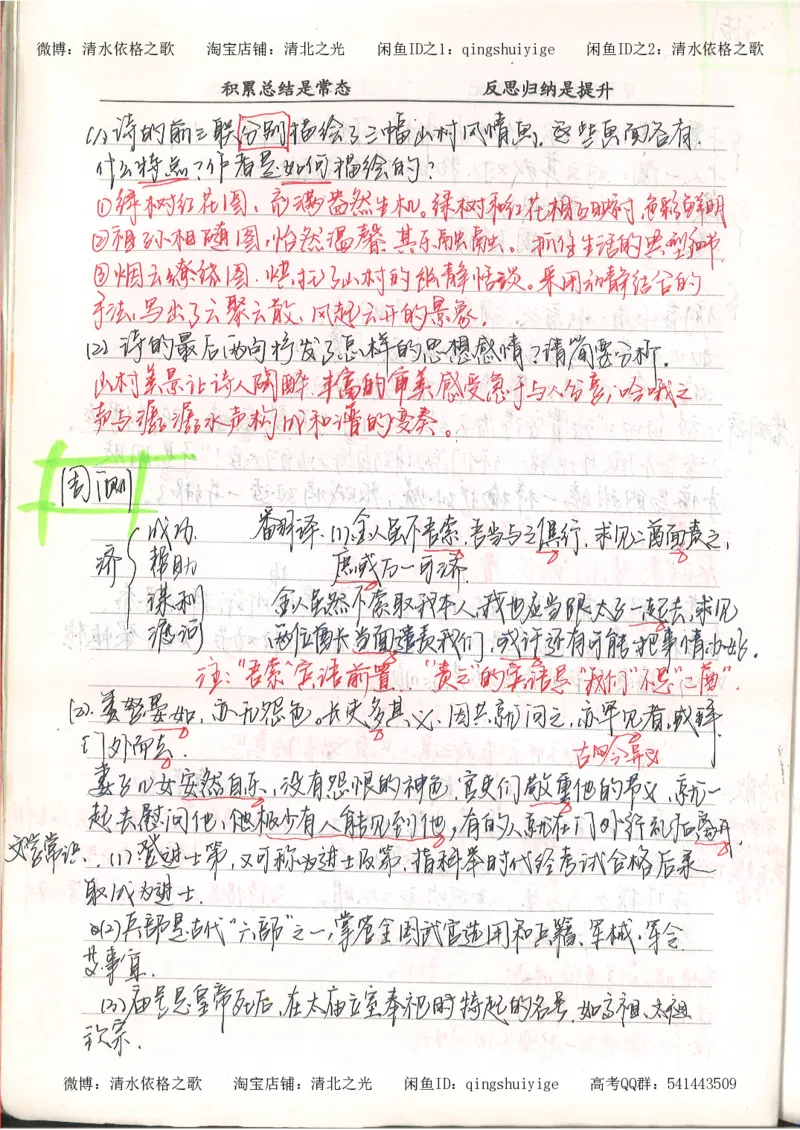 微博：清水依格之歌 淘宝店铺：清北之光 闲鱼ID之1：qingshuiyige 闲鱼ID之2：清水依格之歌
积累总结是常态 反思归纳是提升
(1) 诗的前三联分别描绘了三幅山村风情画，这些画面各有
什么特点？作者是如何描绘的？
①绿树红花图，充满盎然生机。绿树和红花相互映衬，色彩鲜明
②祖孙相随图，怡然温馨，其乐融融。抓住生活的典型细节
③烟云缭绕图，烘托了山村的幽静恬淡。采用动静结合的
手法，写出了云聚云散、风起云开的景象.
(2) 诗的最后两句抒发了怎样的思想感情？请简要分析.
山村美景让诗人陶醉，丰富的审美感受急于与人分享；吟哦之
声与潺潺水声构成和谐的变奏。
周测
济 成功 翻译：(1) 金人虽不吾索，吾当与之俱行，求见二酋面责之，
帮助 庶或万一可济.
谋利 金人虽然不索取我本人，我也应当跟太子一起去，求见
渡河 两位酋长当面谴责我们，或许还有可能把事情办好.
注：“吾索”宾语前置，“责之”的宾语是“我们”不是“二酋”.
(2) 妻孥晏如，亦无怨色。长吏多其义，因共就问之，亦罕见者，或拜
门外而去. 古今异义
妻子儿女安然自乐，没有怨恨的神色，官吏们敬重他的节义，就一
起去慰问他，他极少有人能见到他，有的人就在门外行礼后离开.
文学常识：(1) 登进士第，又可称为进士及第，指科举时代经考试合格后录
取成为进士.
(2) 兵部是古代“六部”之一，掌管全国武官选用和兵籍、军械、军令
等事宜.
(3) 庙号是皇帝死后，在太庙立室奉祀时特起的名号，如高祖、太祖
钦宗.
微博：清水依格之歌 淘宝店铺：清北之光 闲鱼ID：qingshuiyige 高考QQ群：541443509